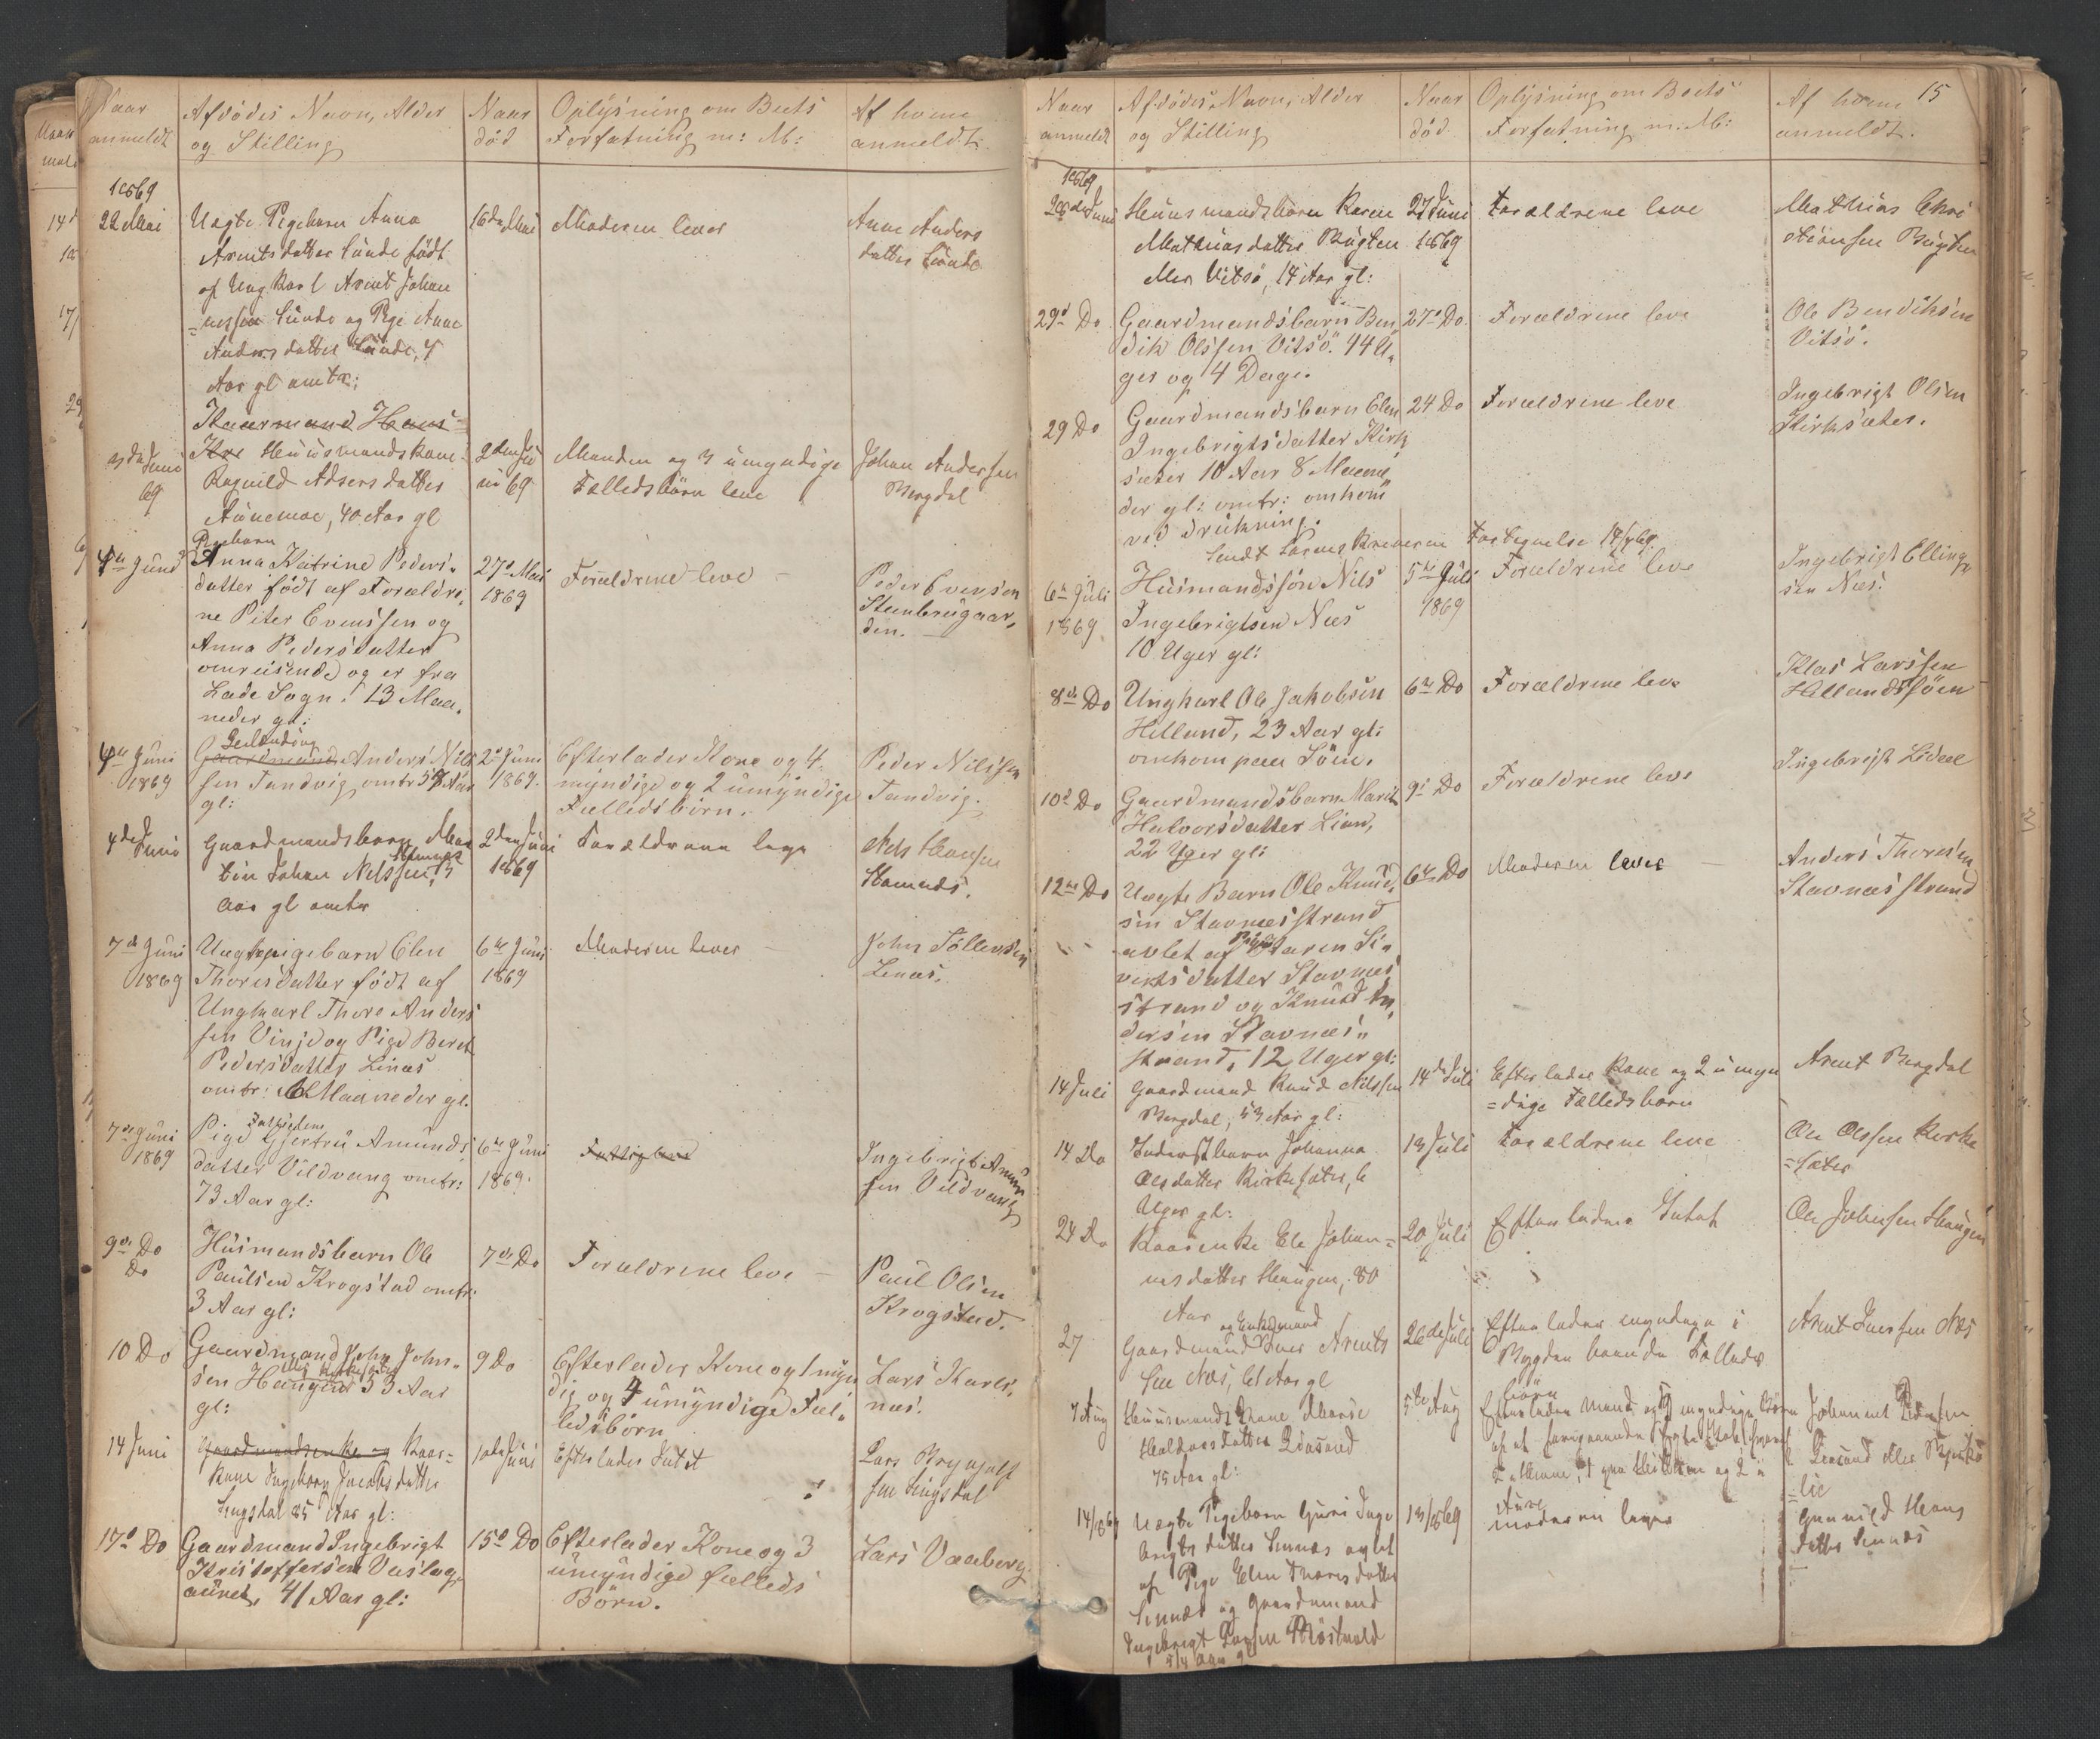 Naar
anmeldt
Afdödes Navn, Alder
og Stilling
Naar
död
Oplysning om Boets
Forfatning m: M:
Af hvem
anmeldt.
1869
22 Mai
Uægte Pigebarn Anna
Arentsdatter Lünde födt
af Ung Karl Arent Johan
=nessen Lünde og Pige Anne
Andersdatter Lünde, 4
Aar gl omtr:
16de Mai
Moderen lever
Anne Anders
datter Lünde
Kaarmand Hans=
3die Juni
69
Kre Huusmandskone
Ragnild Adsersdatter
Aünemoe, 40 Aar gl
2den Ju
ni 69
Manden og 3 ümyndige
Fælledsbörn leve
Johan Andersen
Bergdal
4de Juni
Pigebarn
Anna Katrine Peders„
datter födt af Forældre„
ne Peter Evenssen og
Anna Pedersdatter
omreisende og er fra
Lade Sogn. 13 Maa„
neder gl:
27de Mai
1869
Forældrene leve
Peder Evensen
Steenbrugaar„
den.
4de Juni
1869
Selveiding
Gaardmand Anders Nils
sen Tandvig omtr 57 Aar
gl:
2d Juni
1869.
Efterlader Kone og 4
myndige og 2 ümyndige
Fælledsbörn.
Peder Nilssen
Tandvig.
4de Juni
Gaardmandsbarn Mar
tin Johan Nelssen, 13
Stamnes
Aar gl omtr
2den Juni
1869
Forældrene leve
Nels Hansen
Stamnes.
7de Juni
1869
Uægte pigebarn Elen
Thoresdatter födt af
Ungkarl Thore Anders
sen Vinje og Pige Beret
Pedersdatter Linæs
omtr: 6 Maaneder gl.
6te Juni
1869
Moderen lever
John Töllevsen
Lenæs.
7de Juni
1869
Fattiglem
Pige Gjertru Amunds
datter Vildvang omtr:
73 Aar gl:
6te Juni
1869.
Fattiglem
Ingebrigt Amun
sen Vildvang
9de Do
Do
Hüsmandsbarn Ole
Paülsen Krogstad omtr:
3 Aar gl:
7de Do
Forældrene leve
Paül Olsen
Krogstad.
10 Do
Gaardmand John John„
sen Haugen 53 Aar
gl:
9 Do
Efterlader Kone og 1 myn
dig og 4 ümyndige Fæl„
ledsbörn
Lars Karls„
næs.
14 Juni
Gaardmandsenke og Kaar=
kone Ingeborg Jacobsdatter
Singstal 85 Aar gl:
10de Juni
Efterlader Intet
Lars Brynjulf
sen Singsdal
17d Do
Gaardmand Ingebrigt
Kristoffersen Vaslag„
aünet, 41 Aar gl:
15d Do
Efterlader Kone og 3
ümyndige fælleds
Börn.
Lars Vaaberg
15
Naar
anmeldt
Afdödes Navn, Alder
og Stilling
Naar
död.
Oplysning om Boets
Forfatning m. M:
Af hvem
anmeldt.
1869
28de Juni
Huusmandsbarn Karen
Mathiasdatter Bugten
eller Vitsö, 14 Aar gl:
27 Juni
1869
Forældrene leve
Mathias Chri
stiansen Bugten
29d Do
Gaardmandsbarn Ben„
dik Olssen Vitsö. 44 U„
ger og 4 Dage.
27d Do.
Forældrene leve
Ole Bendiksen
Vitsö.
29 Do
Gaardmandsbarn Elen
Ingebrigtsdatter Kirk
sæter 10 Aar 8 Maane„
der gl: omtr: omkom
ved drükning.
24 Do
Forældrene leve
Ingebrigt Olsen
Kirksæter.
Sendt Sorenskriveren Fortegnelse
6te Juli
1869
Hüsmandssön Nils
Ingebrigtsen Næs
10 Uger gl:
5te Juli
1869
Forældrene leve
Ingebrigt Ellings„
sen Næs.
8de Do
Ungkarl Ole Jakobsen
Hellund, 23 Aar gl:
omkom paa Söen.
6te Do
Forældrene leve
Klas Larssen
Hellandssöen
10d Do
Gaardmandsbarn Marit
Halvorsdatter Lian,
22 Uger gl:
9d Do
Forældrene leve
Ingebrigt Lidæl
12te Do
Uægte Barn Ole Knud„
sen Stavnæsstrand
avlet af Pige Karen Si„
vertsdatter Stavnæs
strand og Knud An„
dersen Stavnæs„
strand, 12 Uger gl:
6te Do
Moderen lever
Anders Thoresen
Stavnæsstrand
14 Juli
Gaardmand Knud Nilssen
Bergdal, 53 Aar gl:
14de Juli
Efterlader Kone og 2 ümyn
=dige Fælledsbörn
Arent Bergdal
14 Do
Inderstbarn Johanna
Olsdatter Kirkesæter, 6
Uger gl:
13 Juli
Forældrene leve
Ole Olssen Kirke
=sæter
24 Do
Kaarenke Ele Johan=
nesdatter Haugen, 80
Aar
20 Juli
Efterlader Intet
Ole Johnsen Haugen
27
og Enkemand
Gaardmand Iver Arents
sen Næs, 61 Aar gl
26de Juli
Efterlader myndige i
Bygden boende Fælleds
börn
Arent Iversen Næs
7 Aug
Huusmands Kone Marie
Haldorsdatter
75 Aar gl:
5te Aug
Efterlader Mand og myndige Börn
Johannes
14/8 69
Uægte Pigebarn Guri Inge
brigtsdatter Lennæs avlet
af Pige Elen Thoresdatter
Lennæs og Gaardmand
Ingebrigt Larsen Röstvold
13/8 69
Moderen lever
Gunnild Hans
datter Lennæs